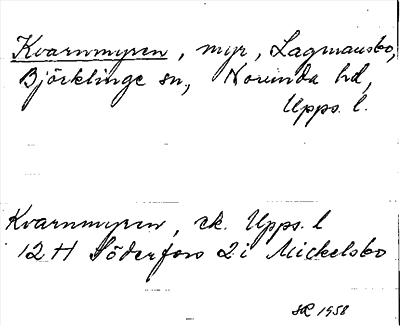 Kvarnmyren, myr, Lagmansbo,
Björklinge sn, Norunda hd,
Upps. l.
Kvarnmyren, ek. Upps. l
12 H Söderfors 2 i Mickelsbo
HR 1958